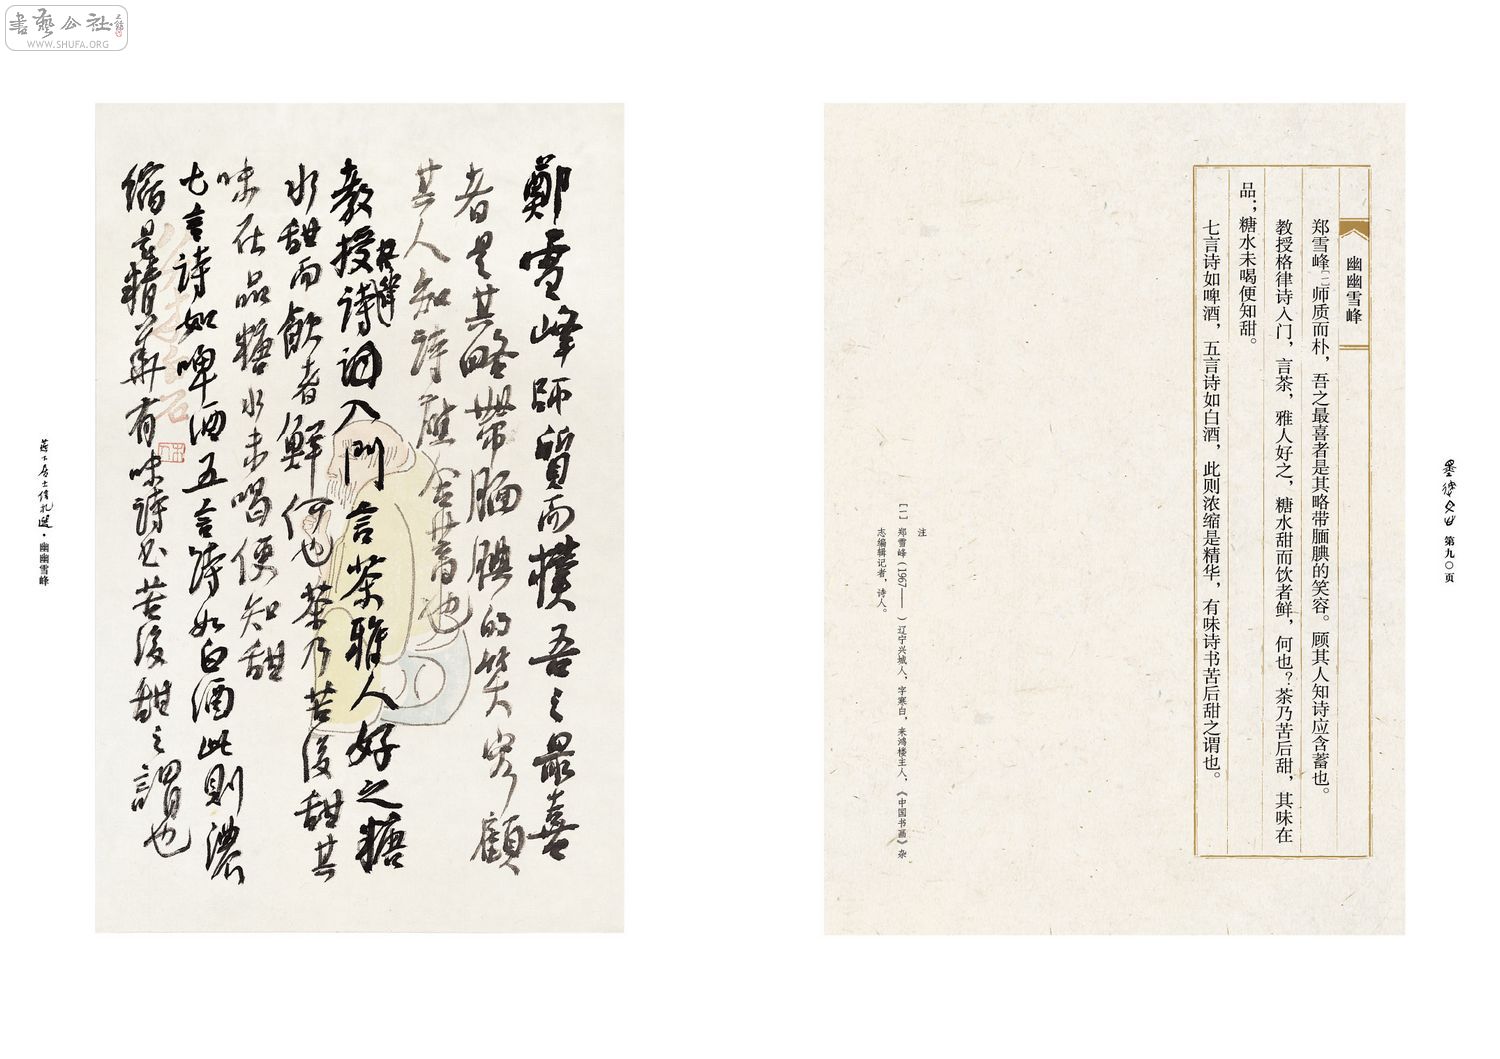 書藝公社
WWW.SHUFA.ORG
鄭雪峰師質而樸吾之最喜
者是其略帶腼腆的笑容顧
其人知詩應含蓄也
教授格律詩詞入門言茶雅人好之糖
水甜而飲者鮮何也茶乃苦後甜其
味在品糖水未喝便知甜
七言詩如啤酒五言詩如白酒此則濃
縮是精華有味詩书苦後甜之謂也
幽幽雪峰
幽幽雪峰
郑雪峰[一]师质而朴，吾之最喜者是其略带腼腆的笑容。顾其人知诗应含蓄也。
教授格律诗入门，言茶，雅人好之，糖水甜而饮者鲜，何也？茶乃苦后甜，其味在
品；糖水未喝便知甜。
七言诗如啤酒，五言诗如白酒，此则浓缩是精华，有味诗书苦后甜之谓也。
注
[一] 郑雪峰（1967—— ）辽宁兴城人，字寒白，来鸿楼主人，《中国书画》杂
志编辑记者，诗人。
第九〇页